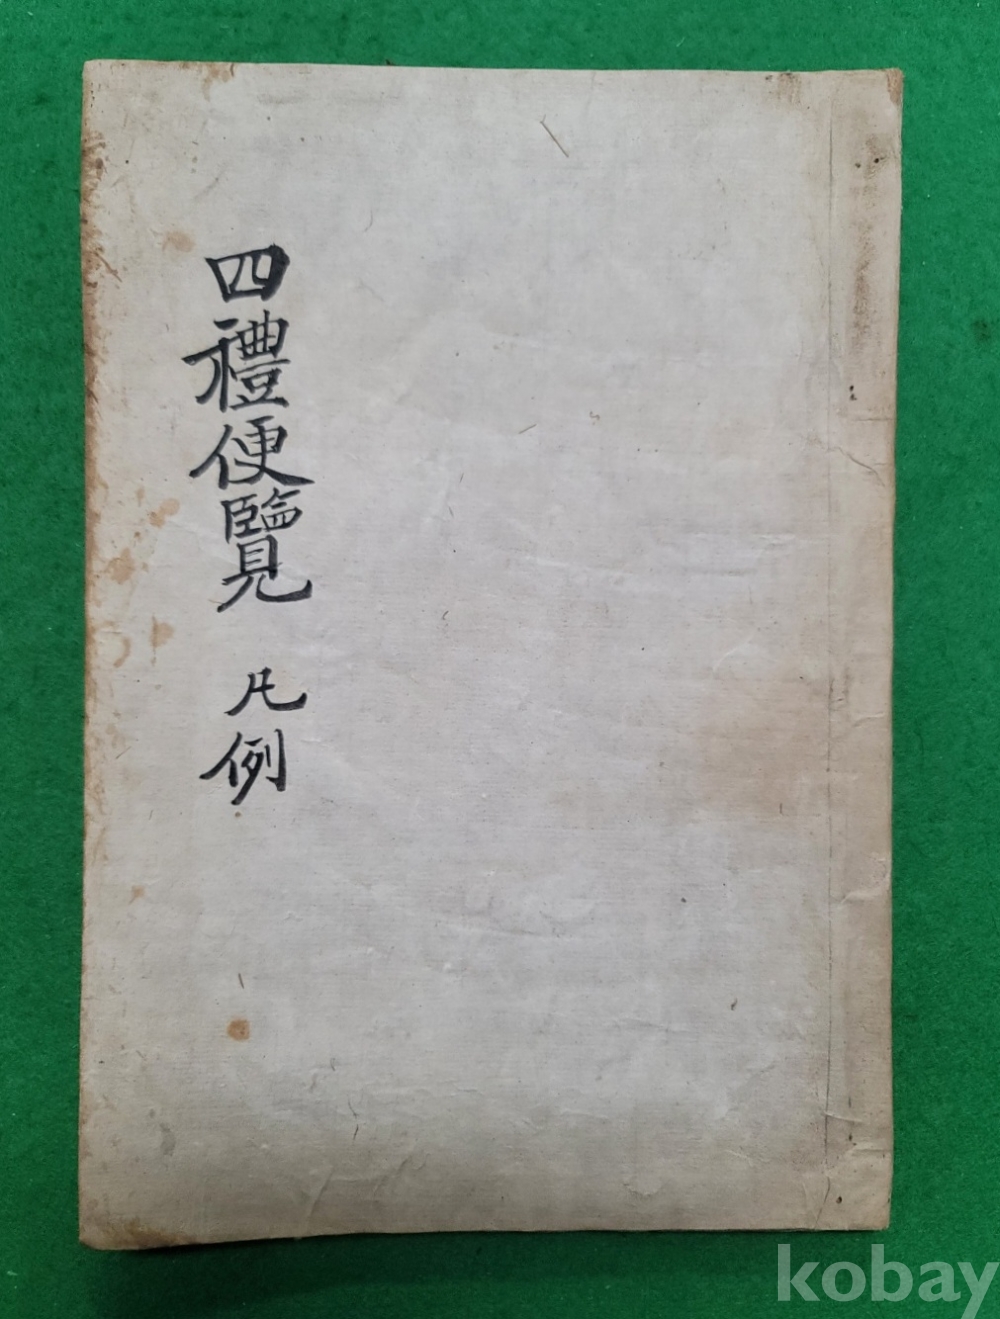 四禮便覽 凡例
kobay